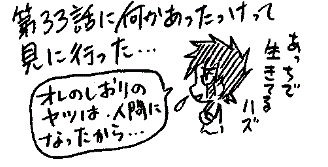 第33話に何があったっけって
見に行った…
あっちで
生きてる
ハズ
オレのしおりの
ヤツは、人間に
なったから…